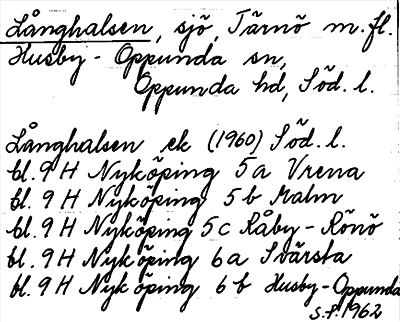 Långhalsen, sjö, Tärnö m.fl.
Husby-Oppunda sn,
Oppunda hd, Söd. l.
Långhalsen ek (1960) Söd. l.
bl. 9 H Nyköping 5a Vrena
bl. 9 H Nyköping 5 b Malm
bl. 9 H Nyköping 5 c Råby-Rönö
bl. 9 H Nyköping 6 a Svärsta
bl. 9 H Nyköping 6 b Husby-Oppunda
S.P. 1962